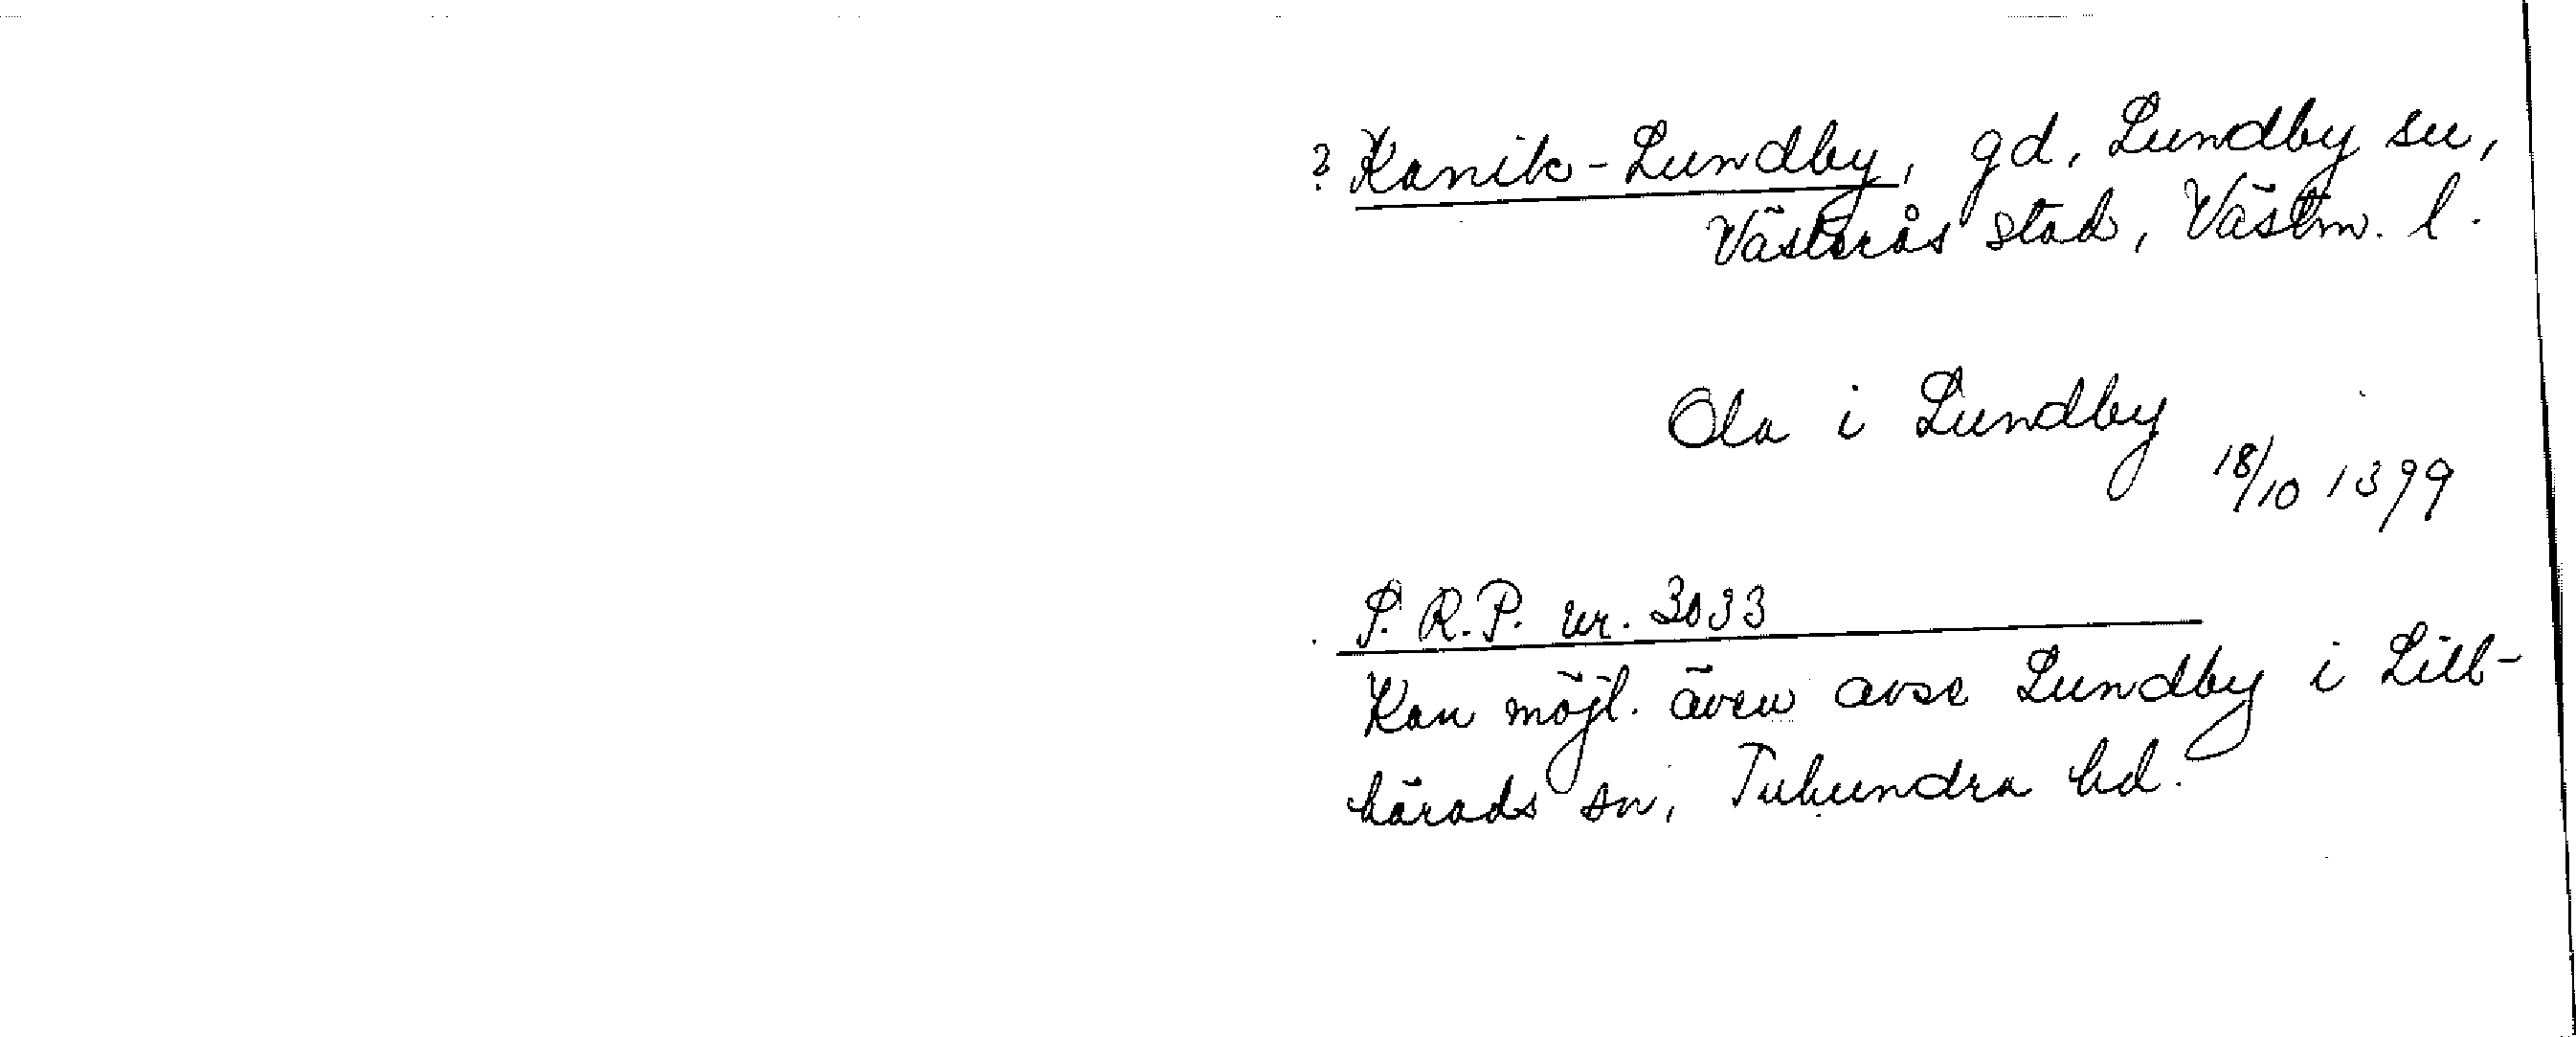 ? Kanik-Lundby, gd, Lundby sn,
Västerås stad, Västm. l.
Ola i Lundby
18/10 1399
P. R. P. nr. 3033
Kan möjl. även avse Lundby i Lill-
härads sn, Tuhundra hd.